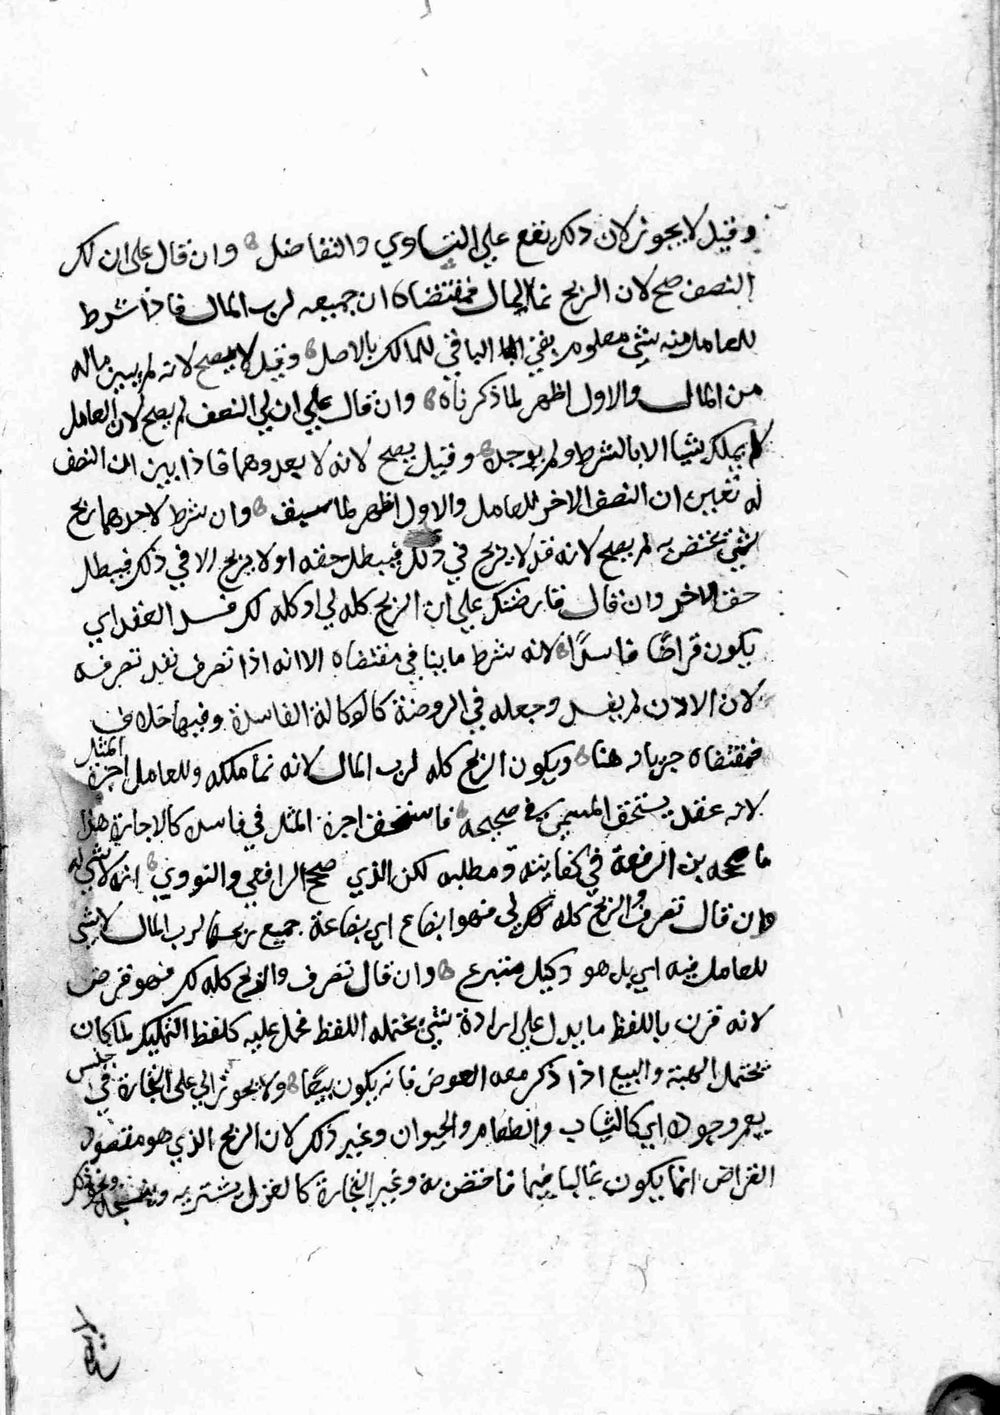 وقيل لا يجوز لان ذلك يقع علي التساوي والتفاضل وان قال على ان لك
النصف صح لان الربح نما المال فمقتضاه ان جميعه لرب المال فاذا شرط
للعامل منه شي معلوم بقي الباقي للمالك بالاصل وقيل لا يصح لانه لم يبين ماله
من المال والاول اظهر لما ذكرناه وان قال علي ان لي النصف لم يصح لان العامل
لا يملك شيا الا بالشرط ولم يوجد وقيل يصح لانه لا يعدوهما فاذا بين ان النصف
له تعين ان النصف الاخر للعامل والاول اظهر لما سبق وان شرط لاحدهما ربح
شي يختص به لم يصح لانه قد لا يربح في ذلك فيبطل حقه او لا يربح الا في ذلك فيبطل
حق الاخر وان قال قارضتك علي ان الربح كله لي او كله لك فسد العقد اي
يكون قراضا فاسدا لانه شرط ما ينافي مقتضاه الا انه اذا تصرف نفد تصرفه
لان الاذن لم يفسد وجعله في الروضة كالوكالة الفاسدة وفيها خلاف
فمقتضاه جريانه هنا ويكون الربح كله لرب المال لانه نما ملكه وللعامل اجرة المثل
لانه عقد يستحق المسمى في صحيحه فاستحق اجرة المثل في فاسده كالاجارة هذا
ما صححه بن الرفعة في كفايته ومطلبه لكن الذي صحح الرافعي والنووي انه لا شي له
وان قال تصرف والربح كله لي فهو ابضاع اي بضاعة جميع ربحها لرب المال لا شي
للعامل فيه اي بل هو وكيل متبرع وان قال تصرف والربح كله لك فهو قرض
لانه قرن باللفظ ما يدل علي ارادة شي يحتمله اللفظ فحمل عليه كلفظ التمليك لما كان
يحتمل الهبة والبيع اذا ذكر معه العوض فانه يكون بيعا ولا يجوز الي على التجارة في جنس
يعم وجوده اي كالثياب والطعام والحيوان وغير ذلك لان الربح الذي هو مقصود
القراض انما يكون غالبا فيما فاختص به وغير التجارة كالغزل يشتريه وينسجه ونحو ذلك